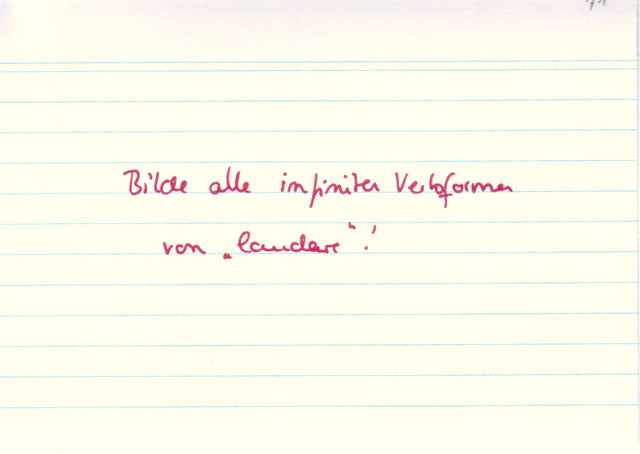 Bilde alle infiniten Verbformen
von „laudare“!